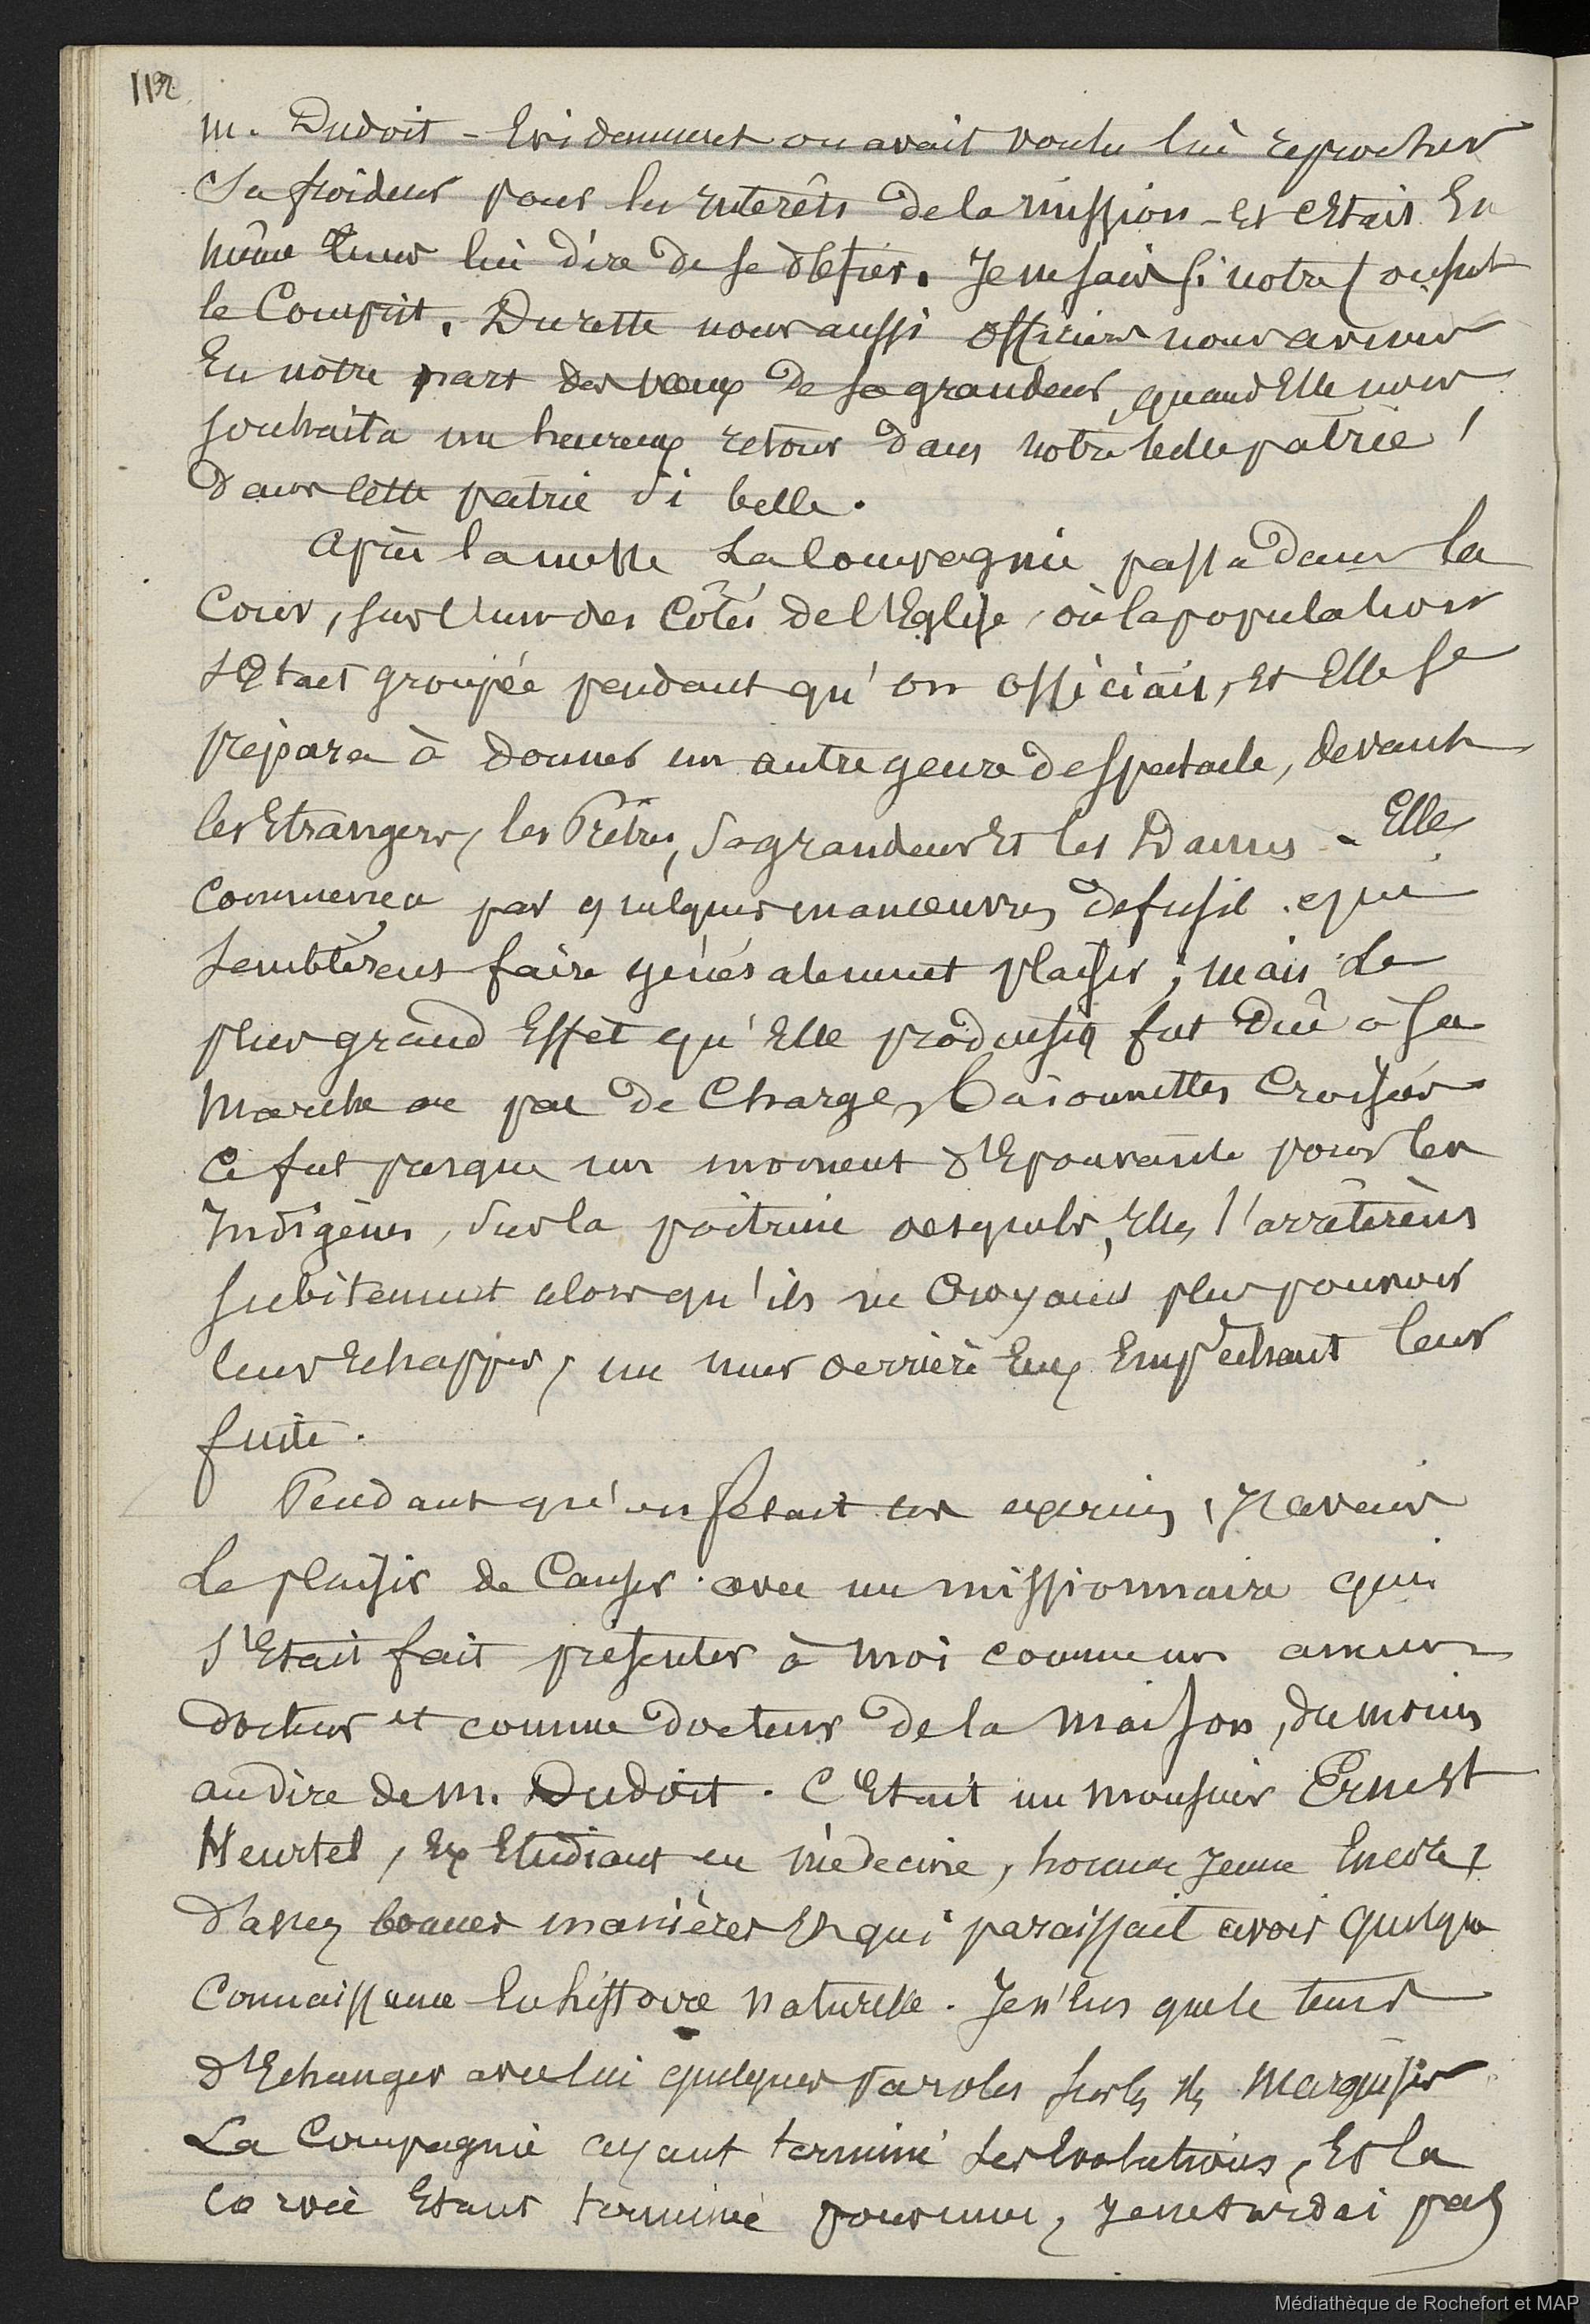 112
M. Dudoit - Evidemment on avait voulu lui reprocher
sa froideur pour les interêts de la mission - et c'était en
même tems lui dire de se défier. Je ne sais si notre consul
le comprit. Du reste nous aussi officiers nous avons
eu notre part des voeux de sa grandeur, quand elle nous
souhaita un heureux retour dans notre belle patrie !
dans cette patrie si belle.
Après la messe la compagnie passa dans la
cour, sur l'un des côtés de l'Eglise, où la population
s'était groupée pendant qu'on officiait, et elle se
prépara à donner un autre genre de spectacle, devant
les Etrangers, les Prêtres, sa grandeur et les Dames - Elle
commença par quelques manoeuvres de fusil qui
semblèrent faire généralement plaisir ; mais le
plus grand effet qu'elle produisit fut dû à sa
marche au pas de charge, baïonnettes croisées
ce fut presque un moment d'épouvante pour les
Indigènes, sur la poitrine desquels, elles s'arrêtèrent
subitement alors qu'ils ne croyaient plus pouvoir
leur échapper, un mur derrière eux empêchant leur
fuite.
Pendant qu'on fesait ces exercices, j'avais
le plaisir de causer avec un missionnaire qui
s'était fait présenter à moi comme un
docteur et comme docteur de la maison, du moins
au dire de M. Dudoit. C'était un monsieur Ernest
Heurtel, ex étudiant en médecine, homme jeune encore,
d'assez bonnes manières et qui paraissait avoir quelque
connaissance en histoire naturelle. Je n'eus que le tems
d'échanger avec lui quelques paroles sur les Marquises
La compagnie ayant terminé ses évolutions, et la
corvée étant terminée pour nous, je ne tardai pas
Médiathèque de Rochefort et MAP